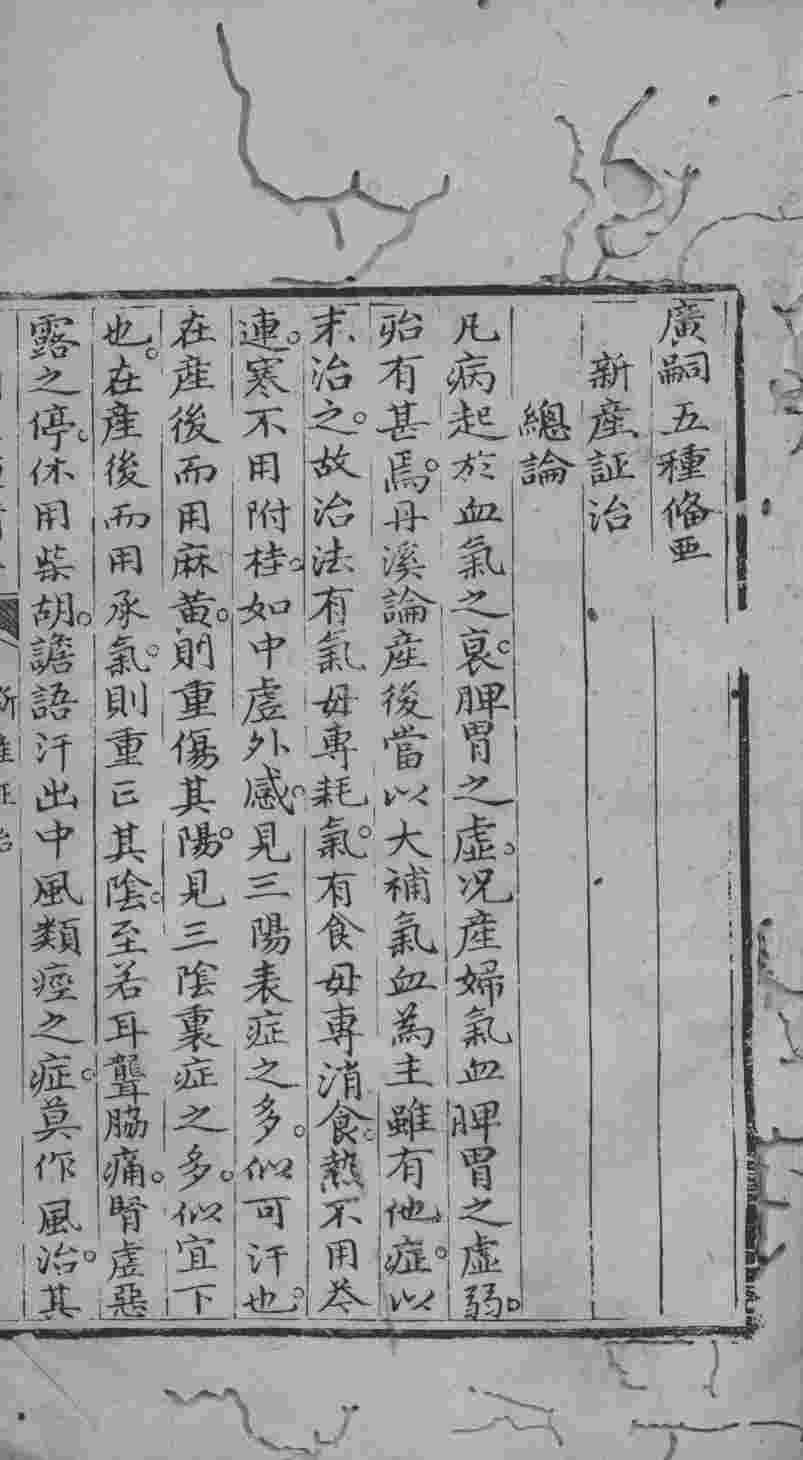 廣嗣五種俻要
新産証治
總論
凡病起於血氣之衰。脾胃之虛。况産婦氣血脾胃之虛弱。
殆有甚焉。丹溪論産後當以大補氣血為主雖有他症。以
末治之。故治法有氣毋專耗氣。有食毋專消食。熱不用芩
連。寒不用附桂。如中虛外感。見三陽表症之多。似可汗也。
在産後而用麻黄。則重傷其陽。見三陰裏症之多。似宜下
也。在産後而用承氣。則重亡其陰。至若耳聾脇痛。腎虛惡
露之停。休用柴胡。譫語汗出中風類痙之症。莫作風治。其
新産証治